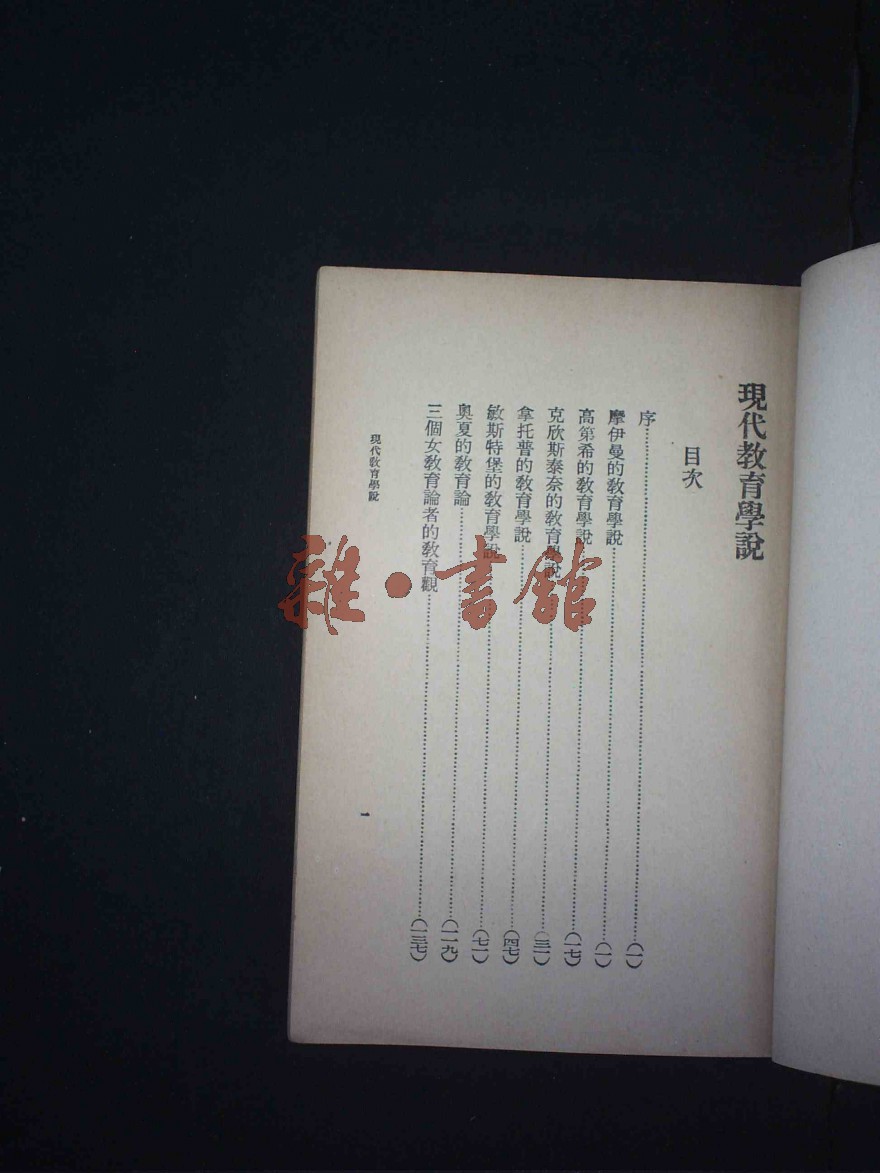 現代教育學說
目次
序……(一)
摩伊曼的教育學說……(一)
高第希的教育學說……(一七)
克欣斯泰奈的教育學說……(三一)
拿托普的教育學說……(四七)
敏斯特堡的教育學說……(七一)
奥夏的教育論……(一一九)
三個女教育論者的教育觀……(一三七)
現代教育學說
一
雜·書館